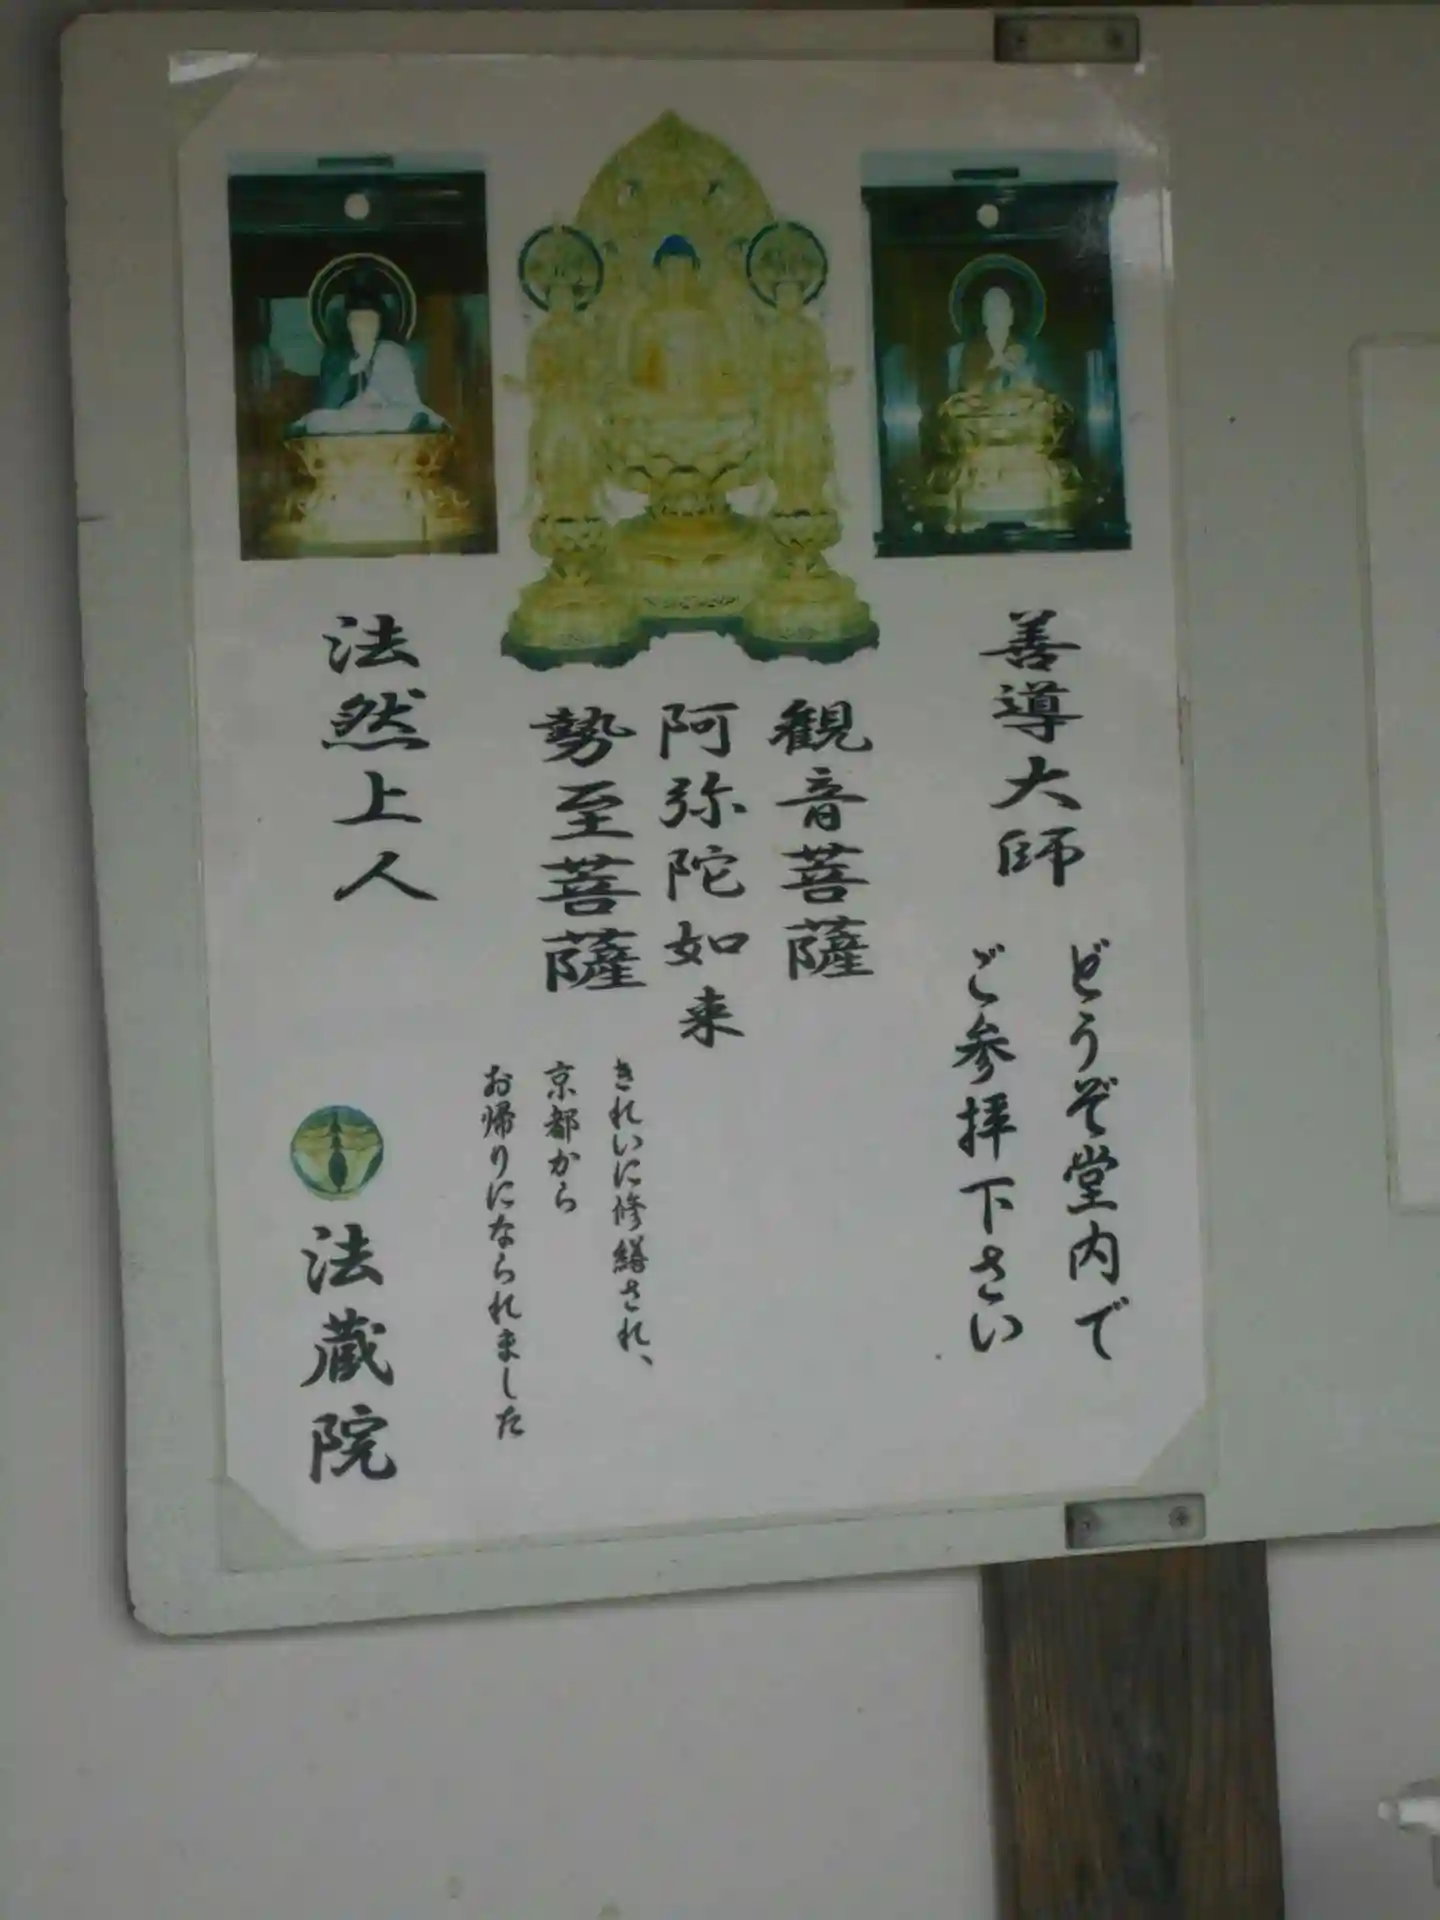 善導大師
どうぞ堂内で
ご参拝下さい
観音菩薩
阿弥陀如来
勢至菩薩
きれいに修繕され、
京都から
お帰りになられました
法然上人
法蔵院